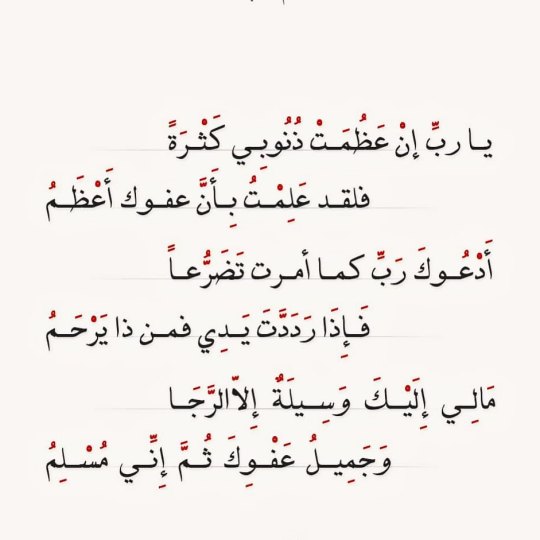 يـا ربِّ إنْ عَظُمَـتْ ذُنُوبِـي كَثْـرَةً
فلقـد عَلِمْـتُ بِـأَنَّ عفـوك أَعْظَـمُ
أَدْعُـوكَ رَبِّ كمـا أمـرت تَضَرُّعـاً
فَـإِذَا رَدَدَّتَ يَـدِي فمـن ذا يَرْحَـمُ
مَالِـي إِلَيْـكَ وَسِـيلَةٌ إِلاّالرَّجَـا
وَجَمِيـلُ عَفْـوِكَ ثُـمَّ إِنِّـي مُسْـلِمُ